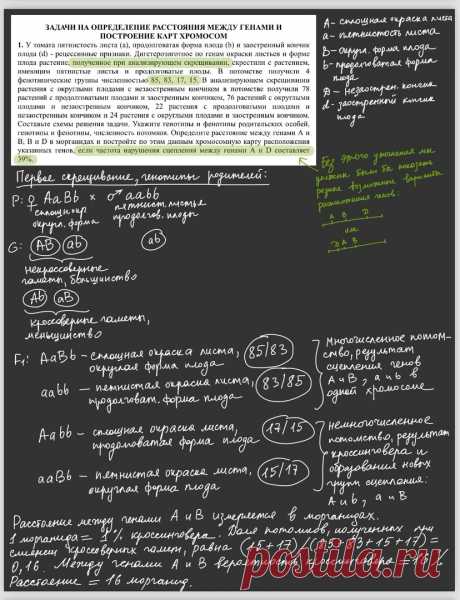 ЗАДАЧИ НА ОПРЕДЕЛЕНИЕ РАССТОЯНИЯ МЕЖДУ ГЕНАМИ И
ПОСТРОЕНИЕ КАРТ ХРОМОСОМ
1. У томата пятнистость листа (a), продолговатая форма плода (b) и заостренный кончик
плода (d) - рецессивные признаки. Дигетерозиготное по генам окраски листьев и форме
плода растение, полученное при анализирующем скрещивании, скрестили с растением,
имеющим пятнистые листья и продолговатые плоды. В потомстве получили 4
фенотипические группы численностью 85, 83, 17, 15. В анализирующем скрещивании
растения с округлыми плодами с незаостренным кончиком в потомстве получили 78
растений с продолговатыми плодами и заостренным кончиком, 76 растений с округлыми
плодами и незаостренным кончиком, 22 растения с продолговатыми плодами и
незаостренным кончиком и 24 растения с округлыми плодами и заостренным кончиком.
Составьте схемы решения задачи. Укажите генотипы и фенотипы родительских особей,
генотипы и фенотипы, численность потомков. Определите расстояние между генами A и
B, B и D в морганидах и постройте по этим данным хромосомную карту расположения
указанных генов, если частота нарушения сцепления между генами A и D составляет
39%.
A - сплошная окраска листа
a - пятнистость листа
B - округл. форма плода
b - продолговатая форма
плода
D - незаострен. кончик
d - заостренный кончик
плода
Без этого уточнения мы
должны были бы
возможные варианты
расположения генов:
A B D
или
D A B
Первое скрещивание, генотипы родителей:
P: ♀ AaBb × ♂ aabb
сплошн. окр. пятнист. листья
округл. форма продолгов. плоды
G: AB ab ab
некроссоверные
гаметы, большинство
Ab aB
кроссоверные гаметы,
меньшинство
F1: AaBb - сплошная окраска листа, 85/83
округлая форма плода
aabb - пятнистая окраска листа, 83/85
продолговат. форма плода
Многочисленное потом-
ство, результат
сцепления генов
A и B, a и b в
одной хромосоме
Aabb - сплошная окраска листа, 17/15
продолговатая форма плода
aaBb - пятнистая окраска листа, 15/17
округлая форма плода
немногочисленное
потомство, результат
кроссинговера и
образования новых
групп сцепления:
A и b, a и B
Расстояние между генами A и B измеряется в морганидах.
1 морганида = 1% кроссинговера. Доля потомков, полученных при
слиянии кроссоверных гамет, равна (15+17)/(85+83+15+17)=
0,16. Между генами A и B вероятность кроссинговера =
Расстояние = 16 морганид.
postila.ru